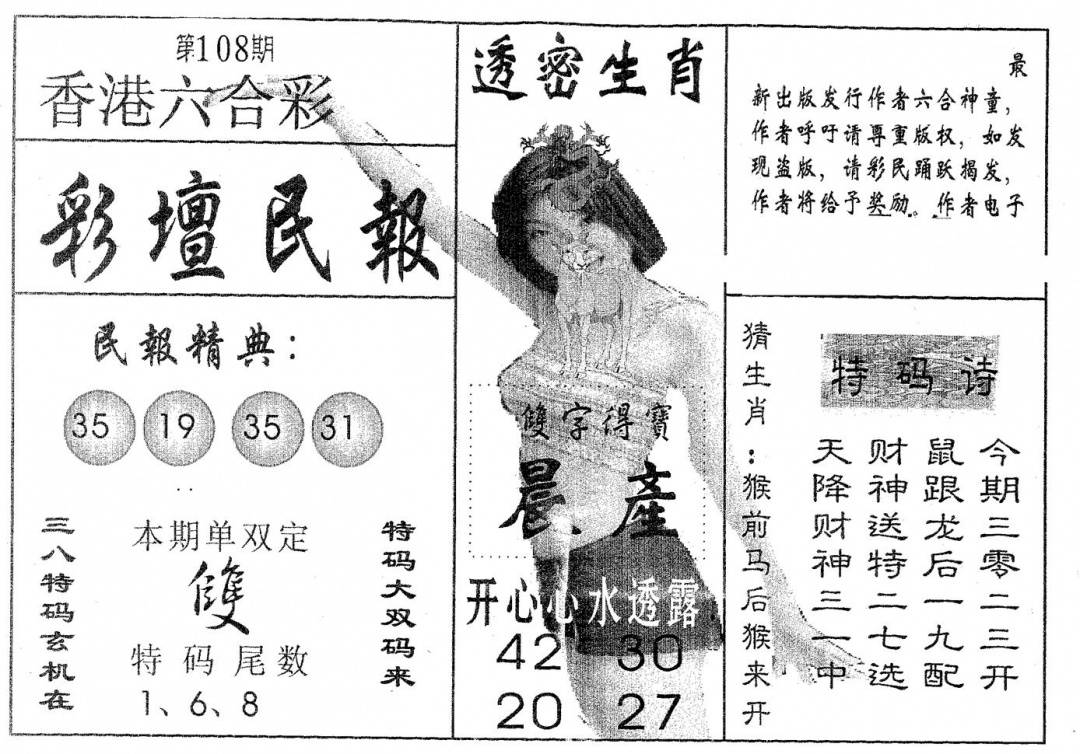 第108期
香港六合彩
彩壇民報
民報精典：
35 19 35 31
三八特码玄机在
本期单双定
雙
特码尾数
1、6、8
特码大双码来
透密生肖
雙字得寶
晨產
开心心水透露
42 30
20 27
最
新出版发行作者六合神童，
作者呼吁请尊重版权，如发
现盗版，请彩民踊跃揭发，
作者将给予奖励。作者电子
猜生肖：猴前马后猴来开
特码诗
今期三零二三开
鼠跟龙后一九配
财神送特二七选
天降财神三一中